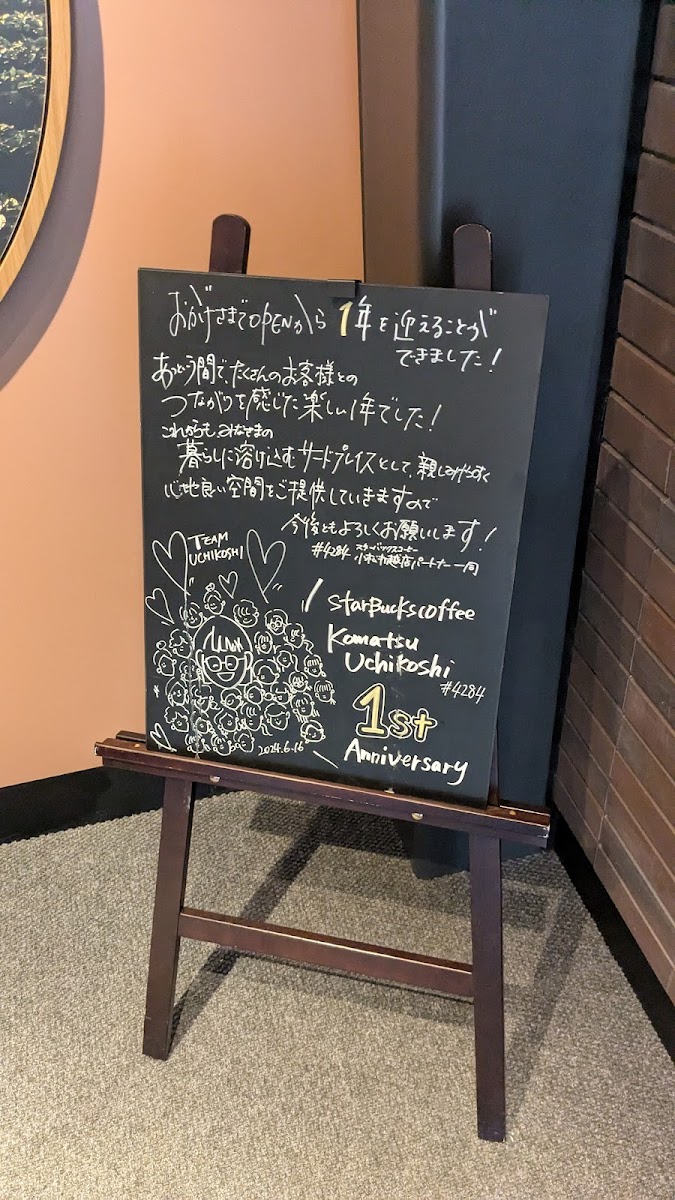 おかげさまでOPENから1年を迎えることが
できました!
あっという間で、たくさんのお客様との
つながりを感じた楽しい1年でした!
これからも、みなさまの
暮らしに溶け込むサードプレイスとして、親しみやすく
心地良い空間をご提供していきますので
今後ともよろしくお願いします!
#4284 スターバックスコーヒー
小松打越店パートナー一同
TEAM
UCHIKOSHI
StarBucks coffee
Komatsu
Uchikoshi
#4284
1st
Anniversary
2024.6.16